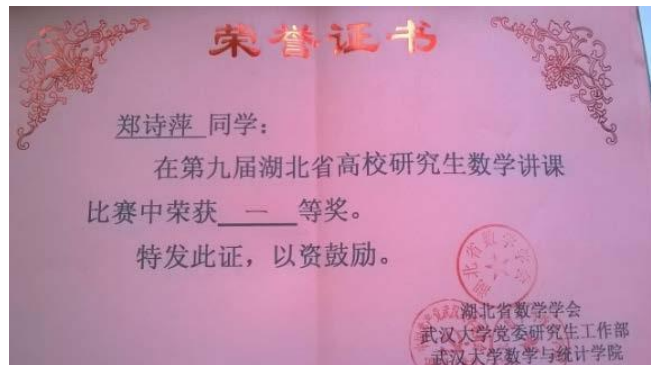 荣誉证书
郑诗萍 同学：
在第九届湖北省高校研究生数学讲课
比赛中荣获 一 等奖。
特发此证，以资鼓励。
湖北省数学学会
湖北省数学学会
武汉大学党委研究生工作部
武汉大学数学与统计学院